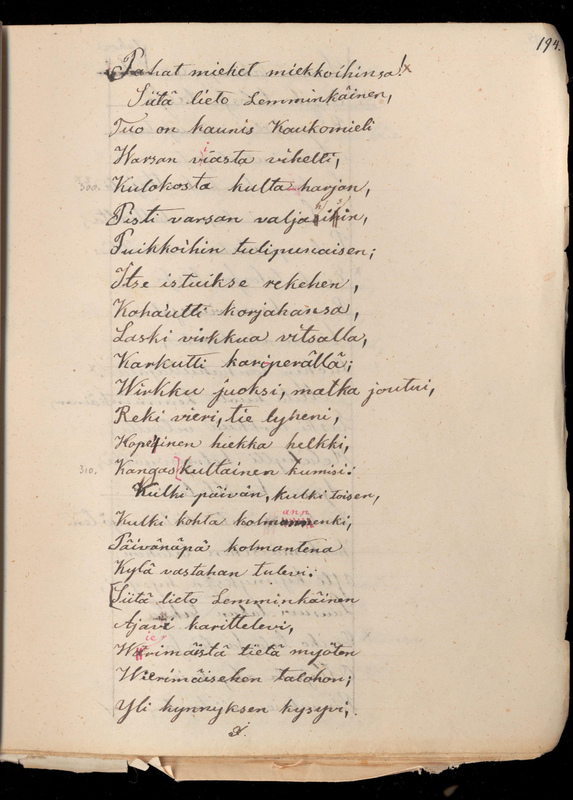 194.
Pahat miehet miekkoihinsa!x
Siitä lieto Lemminkäinen,
Tuo on kaunis Kaukomieli
Warsan viiasta vihelti,
300. Kulokosta kulta-harjan,
Pisti varsan valjahisihin,
Puikkoihin tulipunaisen;
Itse istuikse rekehen,
Kohautti korjahansa,
Laski virkkua vitsalla,
Karkutti kariperällä;
Wirkku juoksi, matka joutui,
Reki vieri, tie lyheni,
Hopeinen hiekka helkki,
310. Kangas kultainen kumisi:
Kulki päivän, kulki toisen,
Kulki kohta kolmannenki,
Päivänäpä kolmantena
Kylä vastahan tulevi:
[Siitä lieto Lemminkäinen
Ajavi karittelevi,
Wierimäistä tietä myöten
Wierimäisehen talohon;
Yli kynnyksen kysyvi,